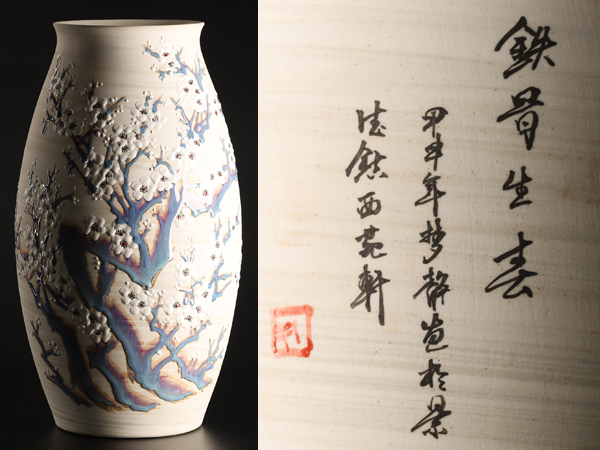 鉄骨生春
甲申年梦静画於景
德鎮西苑軒